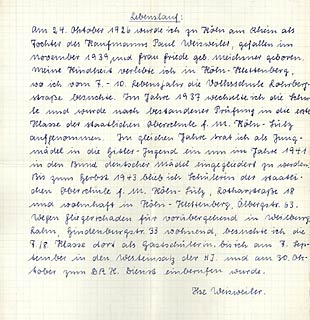 Lebenslauf:
Am 24. Oktober 1926 wurde ich zu Köln am Rhein als
Tochter des Kaufmanns Paul Weisweiler, gefallen im
November 1939, und Frau Friede geb. Meichsner geboren.
Meine Kindheit verlebte ich in Köln-Klettenberg,
wo ich vom 7.-10. Lebensjahr die Volksschule Lohrberg-
straße besuchte. Im Jahre 1937 wechselte ich die Schu-
le und wurde nach bestandener Prüfung in die erste
Klasse der staatlichen Oberschule f. M. Köln-Sülz
aufgenommen. Im gleichen Jahre trat ich als Jung-
mädel in die Hitler-Jugend ein um im Jahre 1941
in den Bund deutscher Mädel eingegliedert zu werden.
Bis zum Herbst 1943 blieb ich Schülerin der staatli-
chen Oberschule f. M. Köln-Sülz, Lotharstraße 18
und wohnhaft in Köln-Klettenberg, Ölbergstr. 53.
Wegen Fliegerschaden für vorübergehend in Weilburg
Lahn, Hindenburgstr. 33 wohnend, besuchte ich die
7./8. Klasse dort als Gastschülerin bis ich am 7. Sep-
tember in den Westeinsatz der HJ. und am 30. Ok-
tober zum D.R.K. Dienst einberufen wurde.
Ilse Weisweiler.